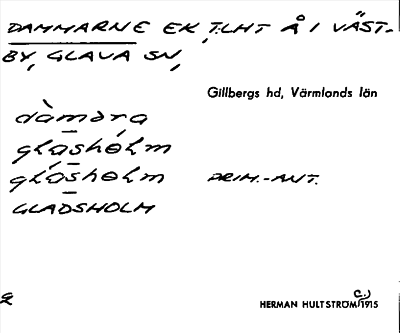 DAMMARNE EK, T.LHT Å I VÄST-
BY, GLAVA SN,
Gillbergs hd, Värmlands län
dàməra
glasholm
glásholm PRIM.-ANT.
GLADSHOLM
HERMAN HULTSTRÖM 1915